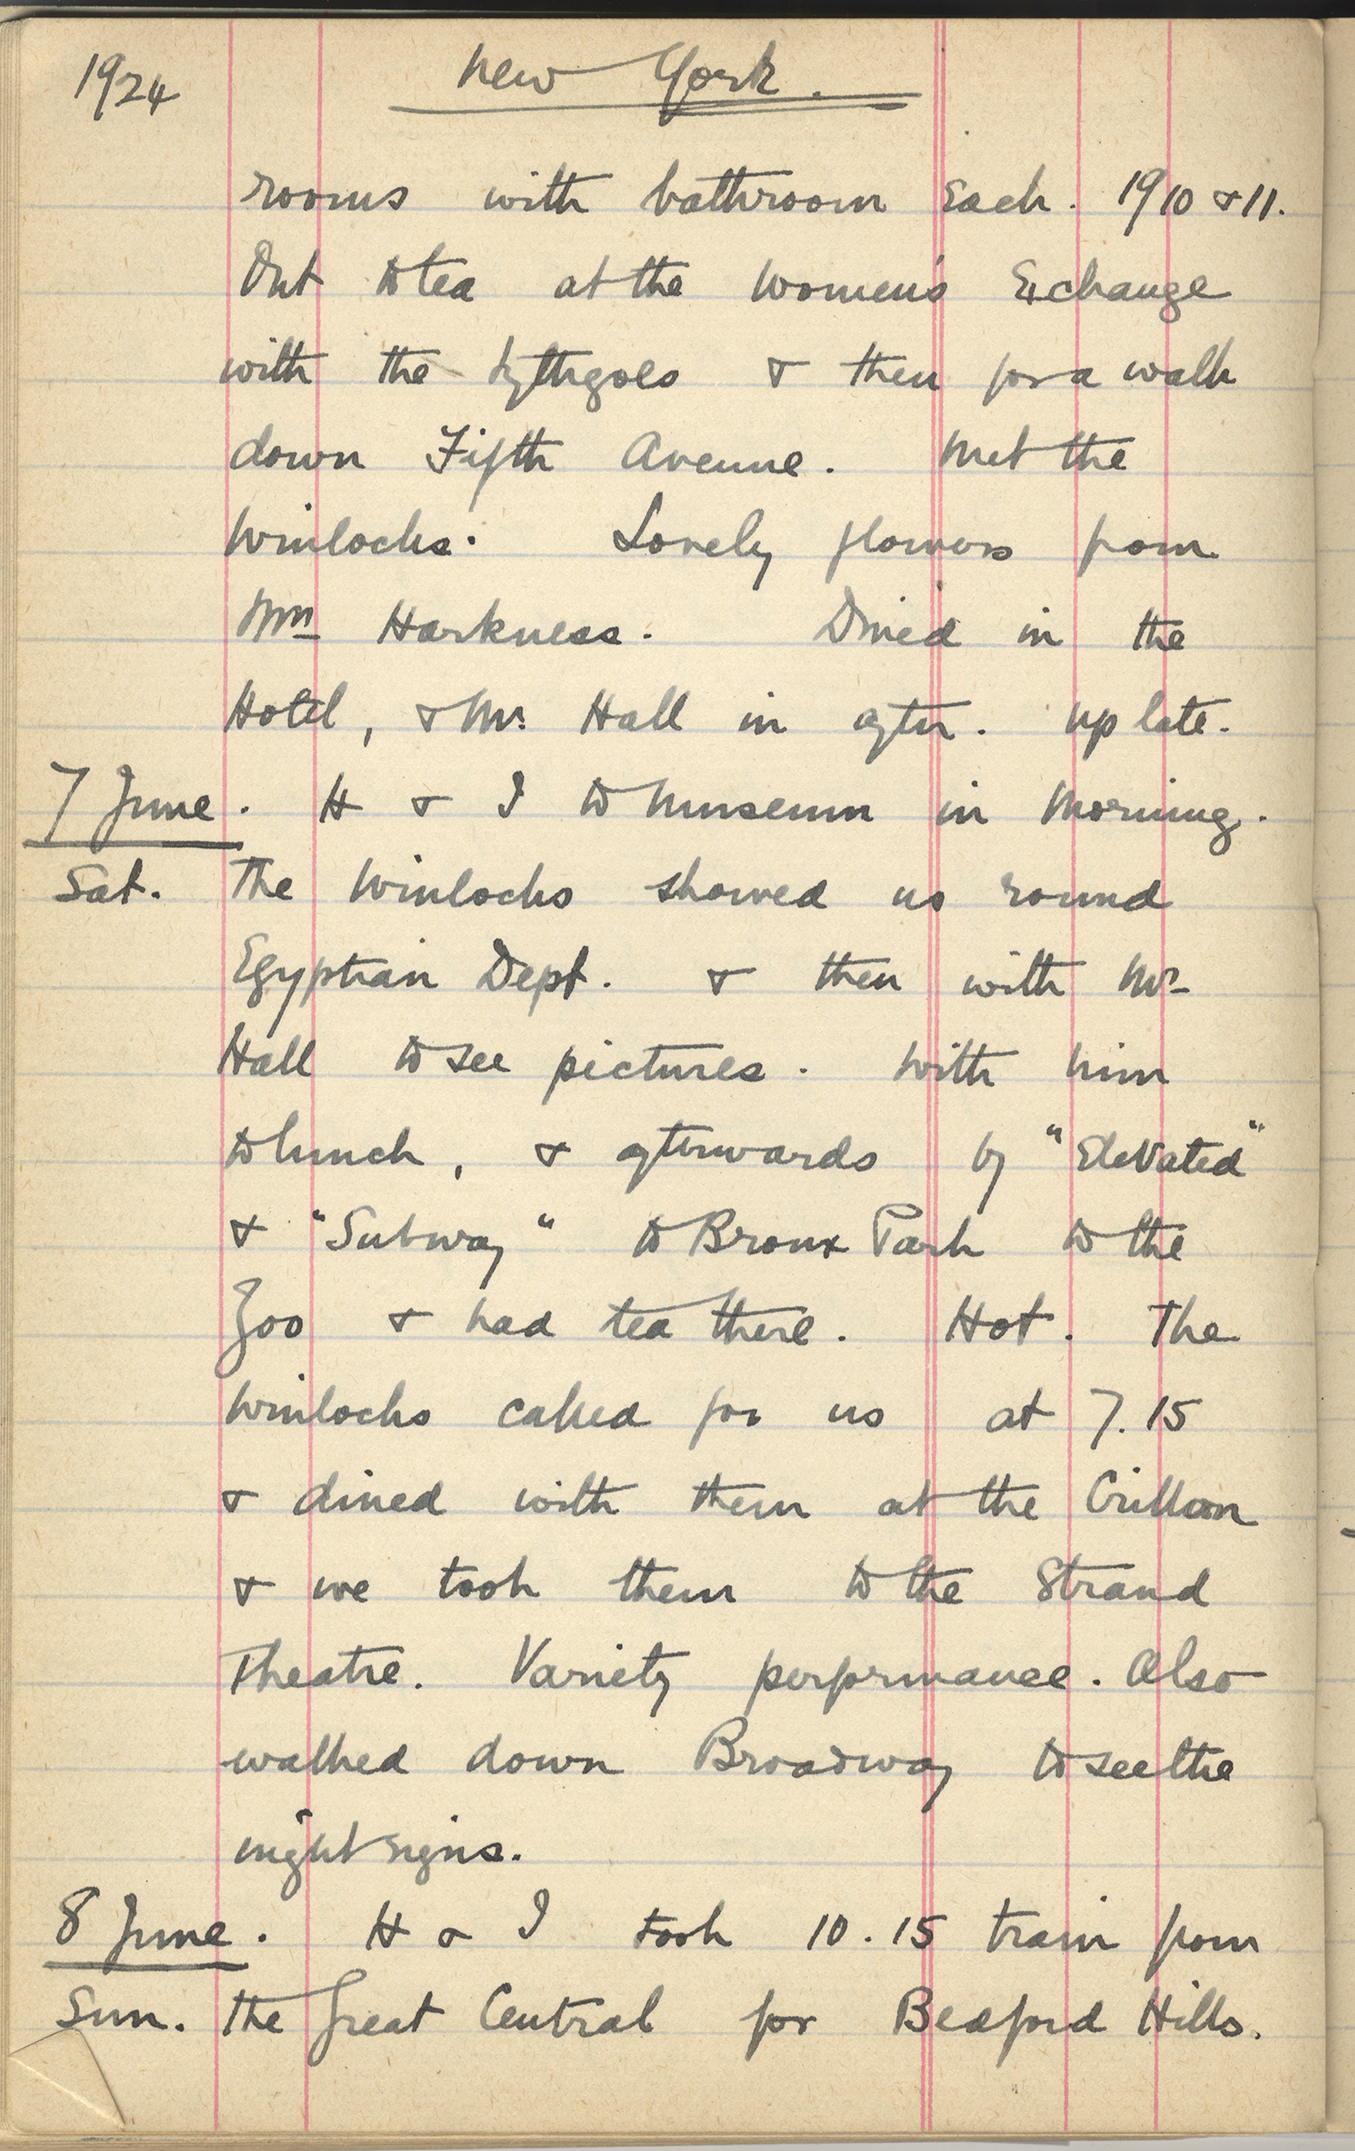 1924 New York.
rooms with bathroom each. 1910 & 11.
Out to tea at the Women's Exchange
with the Lythgoes & then for a walk
down Fifth Avenue. Met the
Winlocks. Lovely flowers from
Mrs Harkness. Dined in the
Hotel, & Mr. Hall in after. Up late.
7 June. H & I to Museum in morning.
Sat. The Winlocks showed us round
Egyptian Dept. & then with Mr
Hall to see pictures. With him
to lunch, & afterwards by "Elevated"
& "Subway" to Bronx Park to the
Zoo & had tea there. Hot. The
Winlocks called for us at 7.15
& dined with them at the Crillon
& we took them to the Strand
Theatre. Variety performance. Also
walked down Broadway to see the
night signs.
8 June. H & I took 10.15 train from
Sun. the Great Central for Bedford Hills.